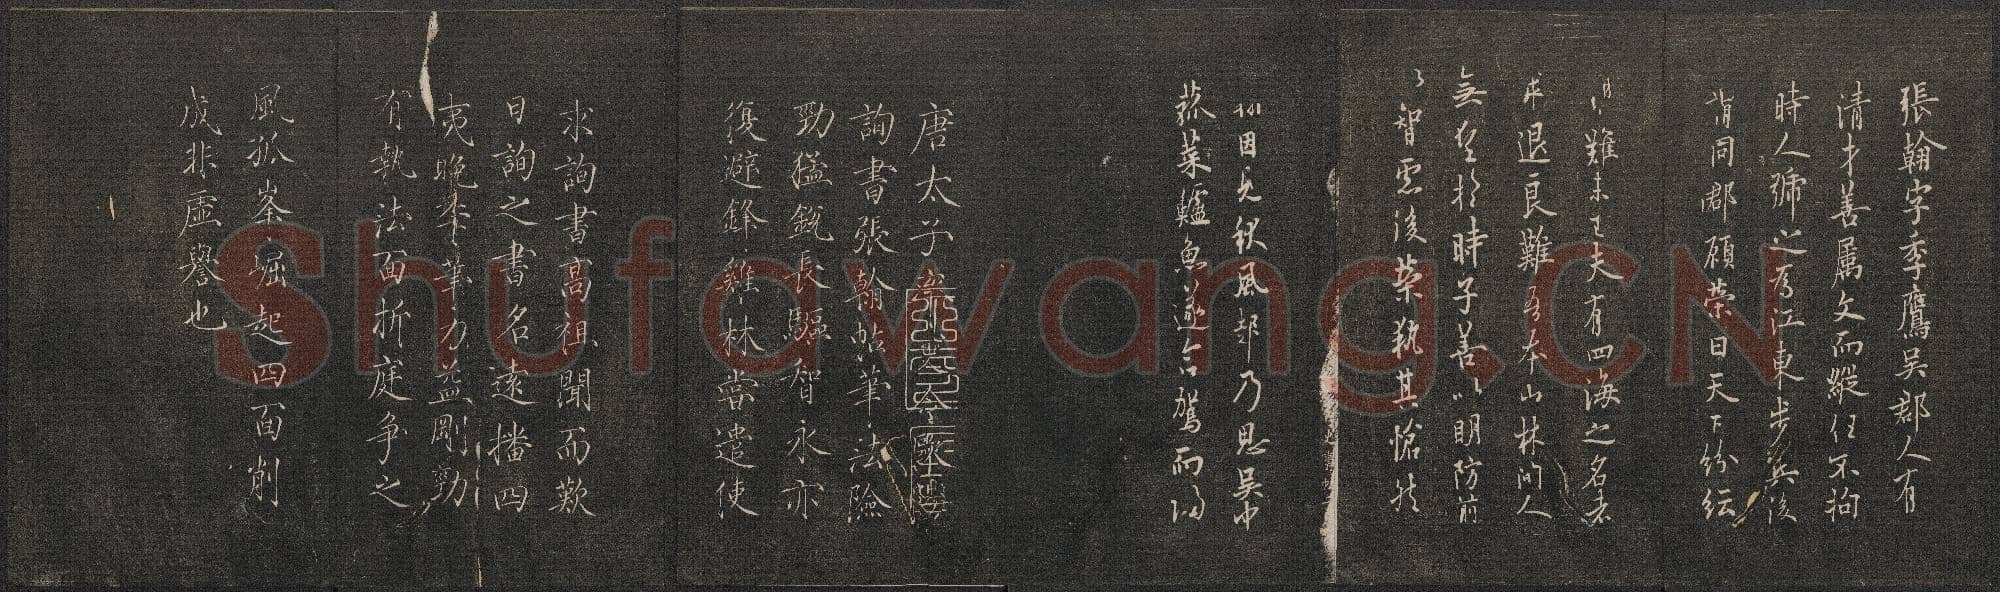 張翰字季鷹吳郡人有
清才善属文而縱任不拘
時人號之為江東步兵後
謂同郡顧榮曰天下紛紜
難未已夫有四海之名者
求退良難吾本山林間人
無望於時子善以明防前
以智慮後榮執其愴然
因見秋風起乃思吳中
菰菜鱸魚遂命駕而歸
唐太子率
詢書張翰帖筆法險
勁猛銳長驅智永亦
復避鋒雞林嘗遣使
求詢書高祖聞而歎
曰詢之書名遠播四
夷晚年筆力益剛勁
有執法面折庭爭之
風孤峯崛起四面削
成非虛譽也
Shufawang.CN